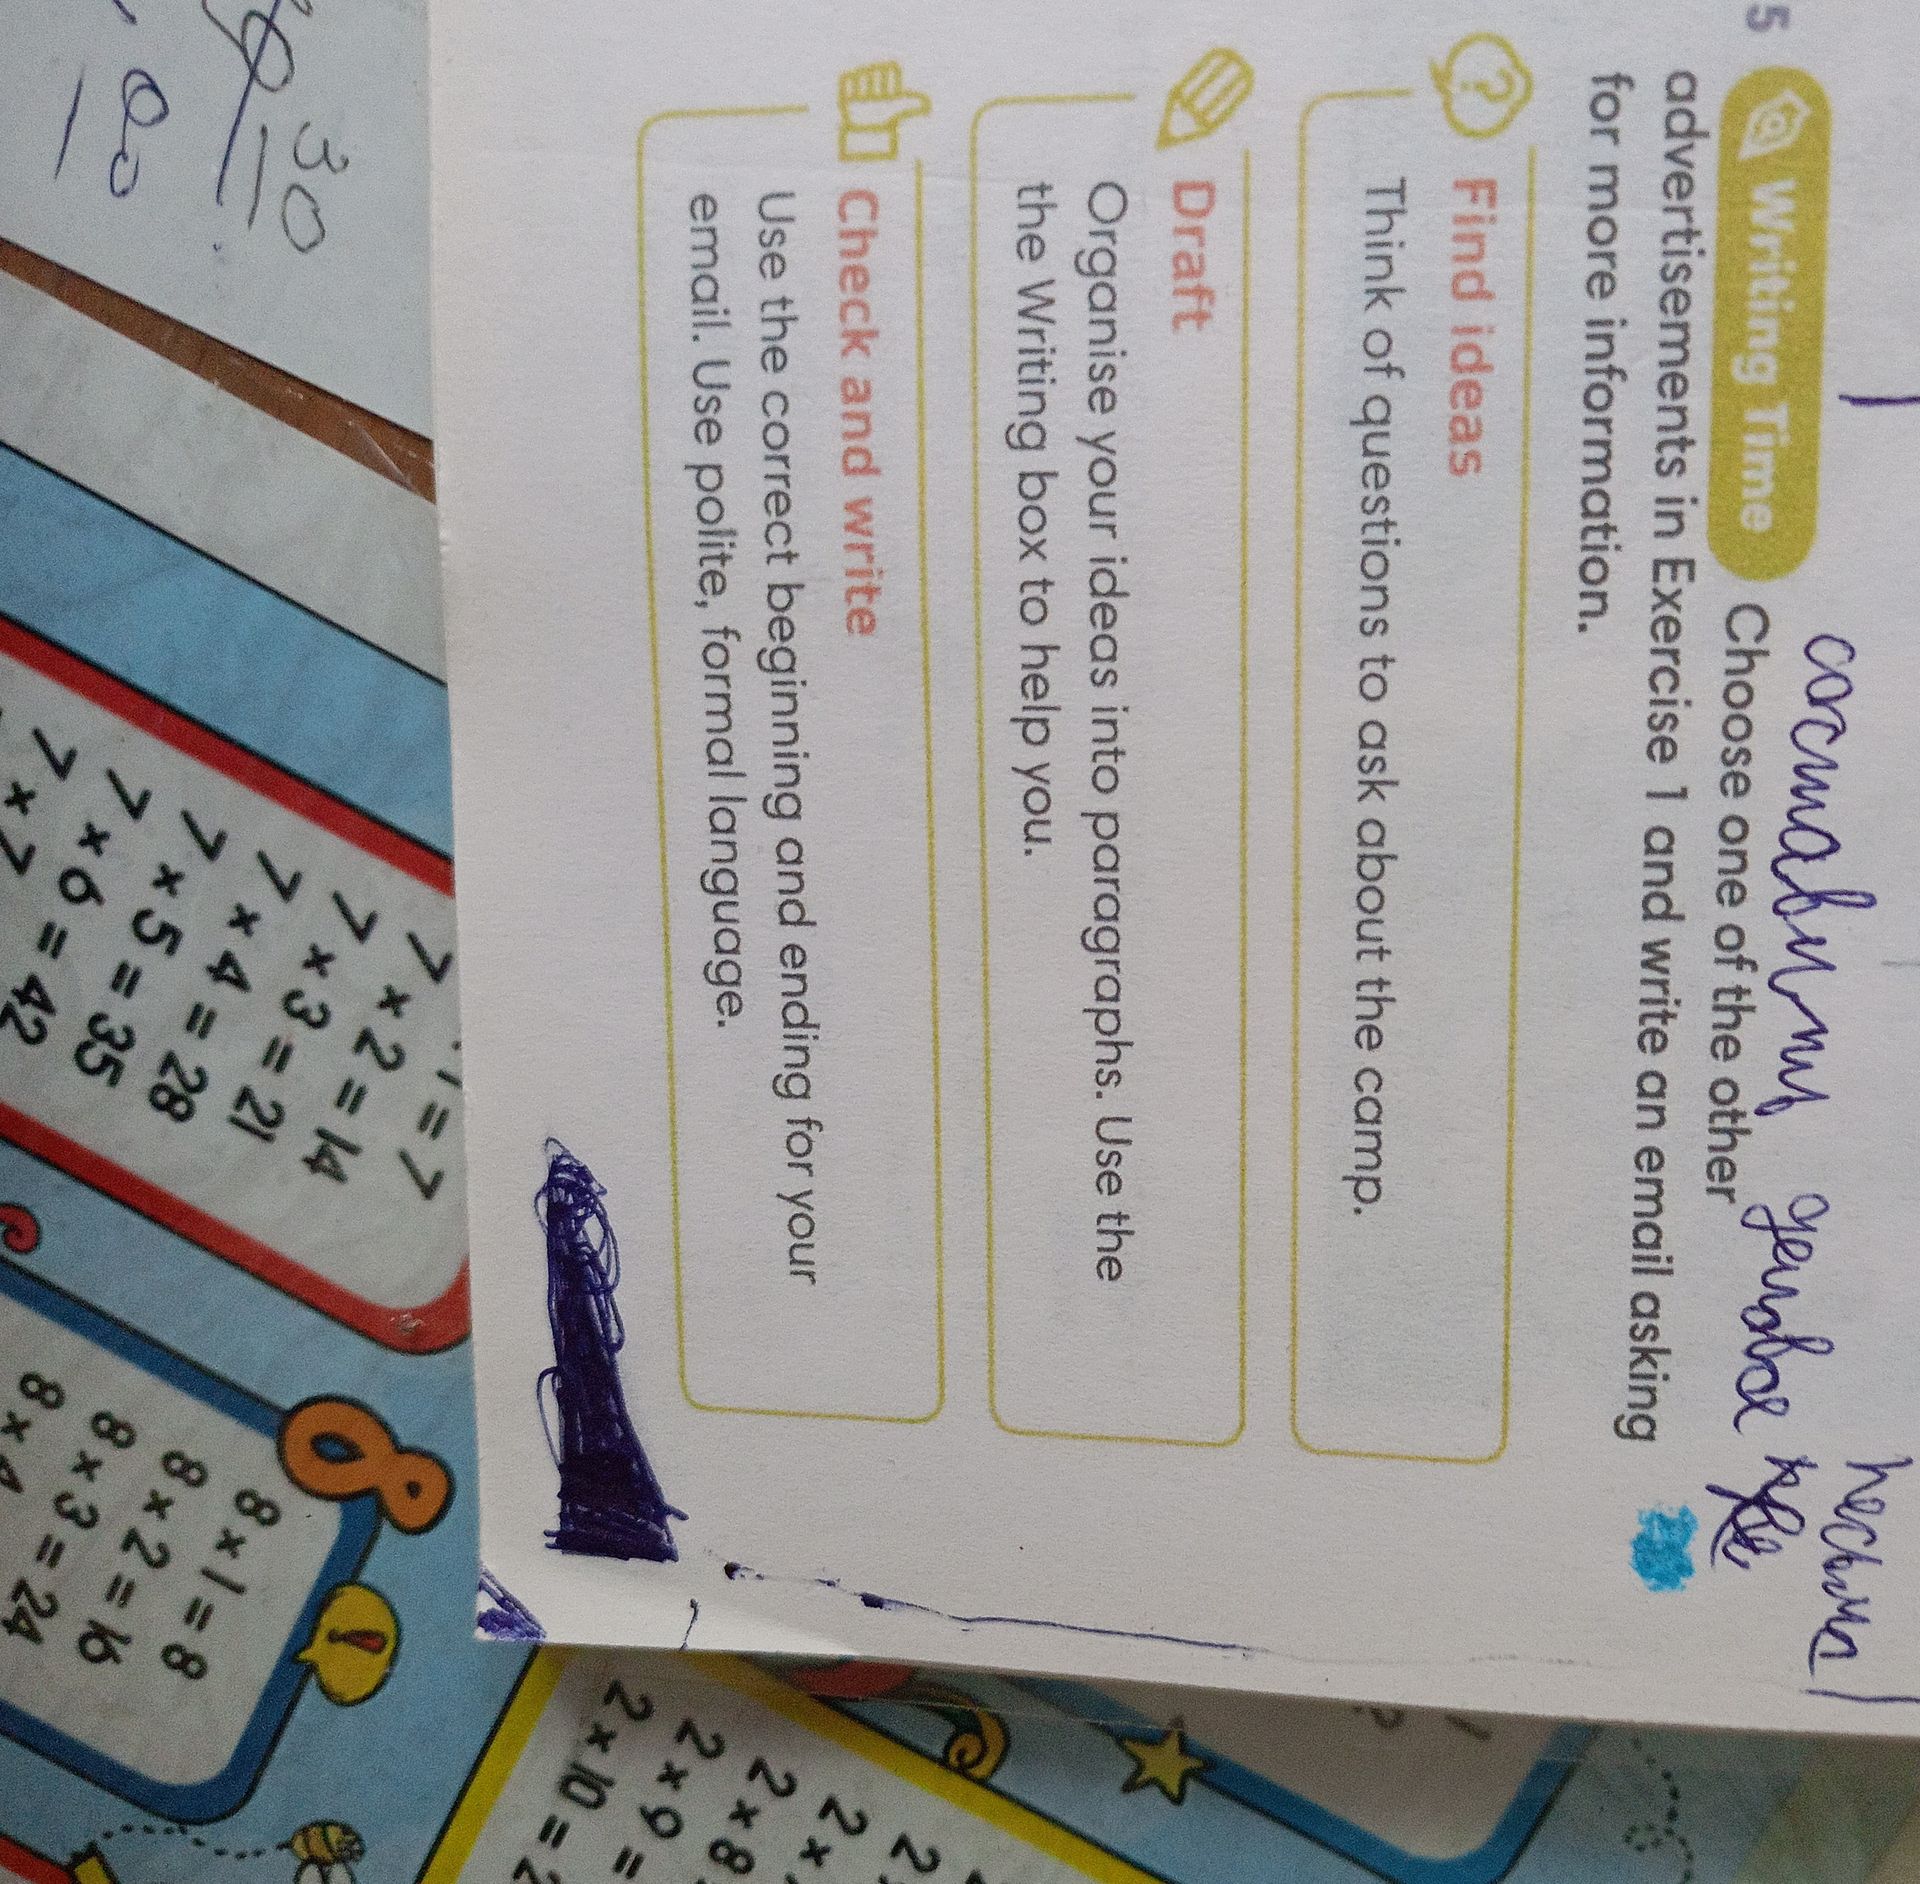 составить
5 Writing Time Choose one of the other
advertisements in Exercise 1 and write an email asking
for more information.
Find ideas
Think of questions to ask about the camp.
Draft
Organise your ideas into paragraphs. Use the
the Writing box to help you.
Check and write
Use the correct beginning and ending for your
email. Use polite, formal language.
30
7 × 2 = 14
7 × 3 = 21
7 × 4 = 28
7 × 5 = 35
7 × 6 = 42
7 × 7
8
8 × 1 = 8
8 × 2 = 16
8 × 3 = 24
8 × 4
!
2 × 8
2 × 9 =
2 × 10 = 2